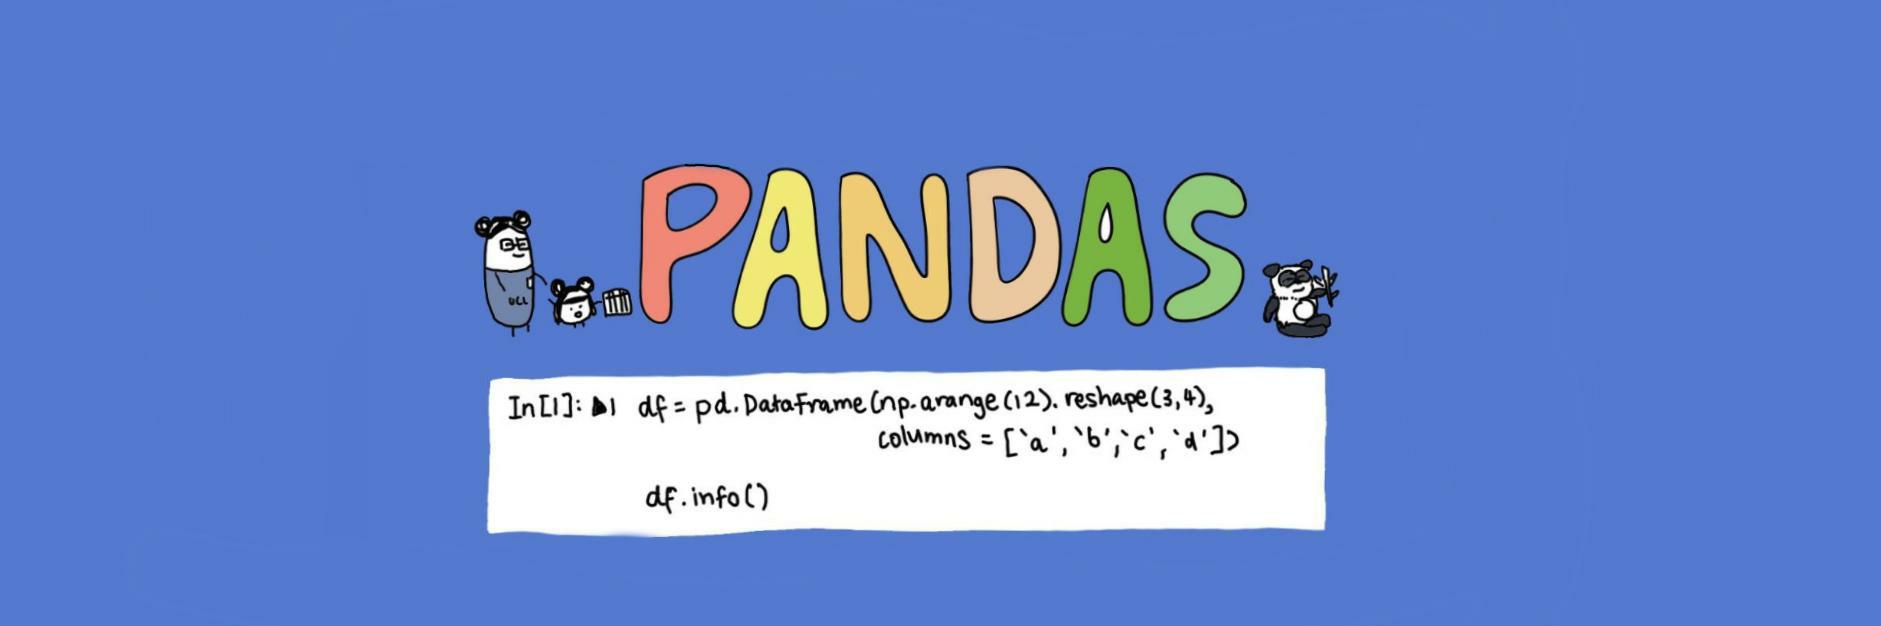 PANDAS
UCL
In[1]: ▶1 df = pd.DataFrame(np.arange(12).reshape(3,4),
columns = [`a', `b', `c', `d'])
df.info()